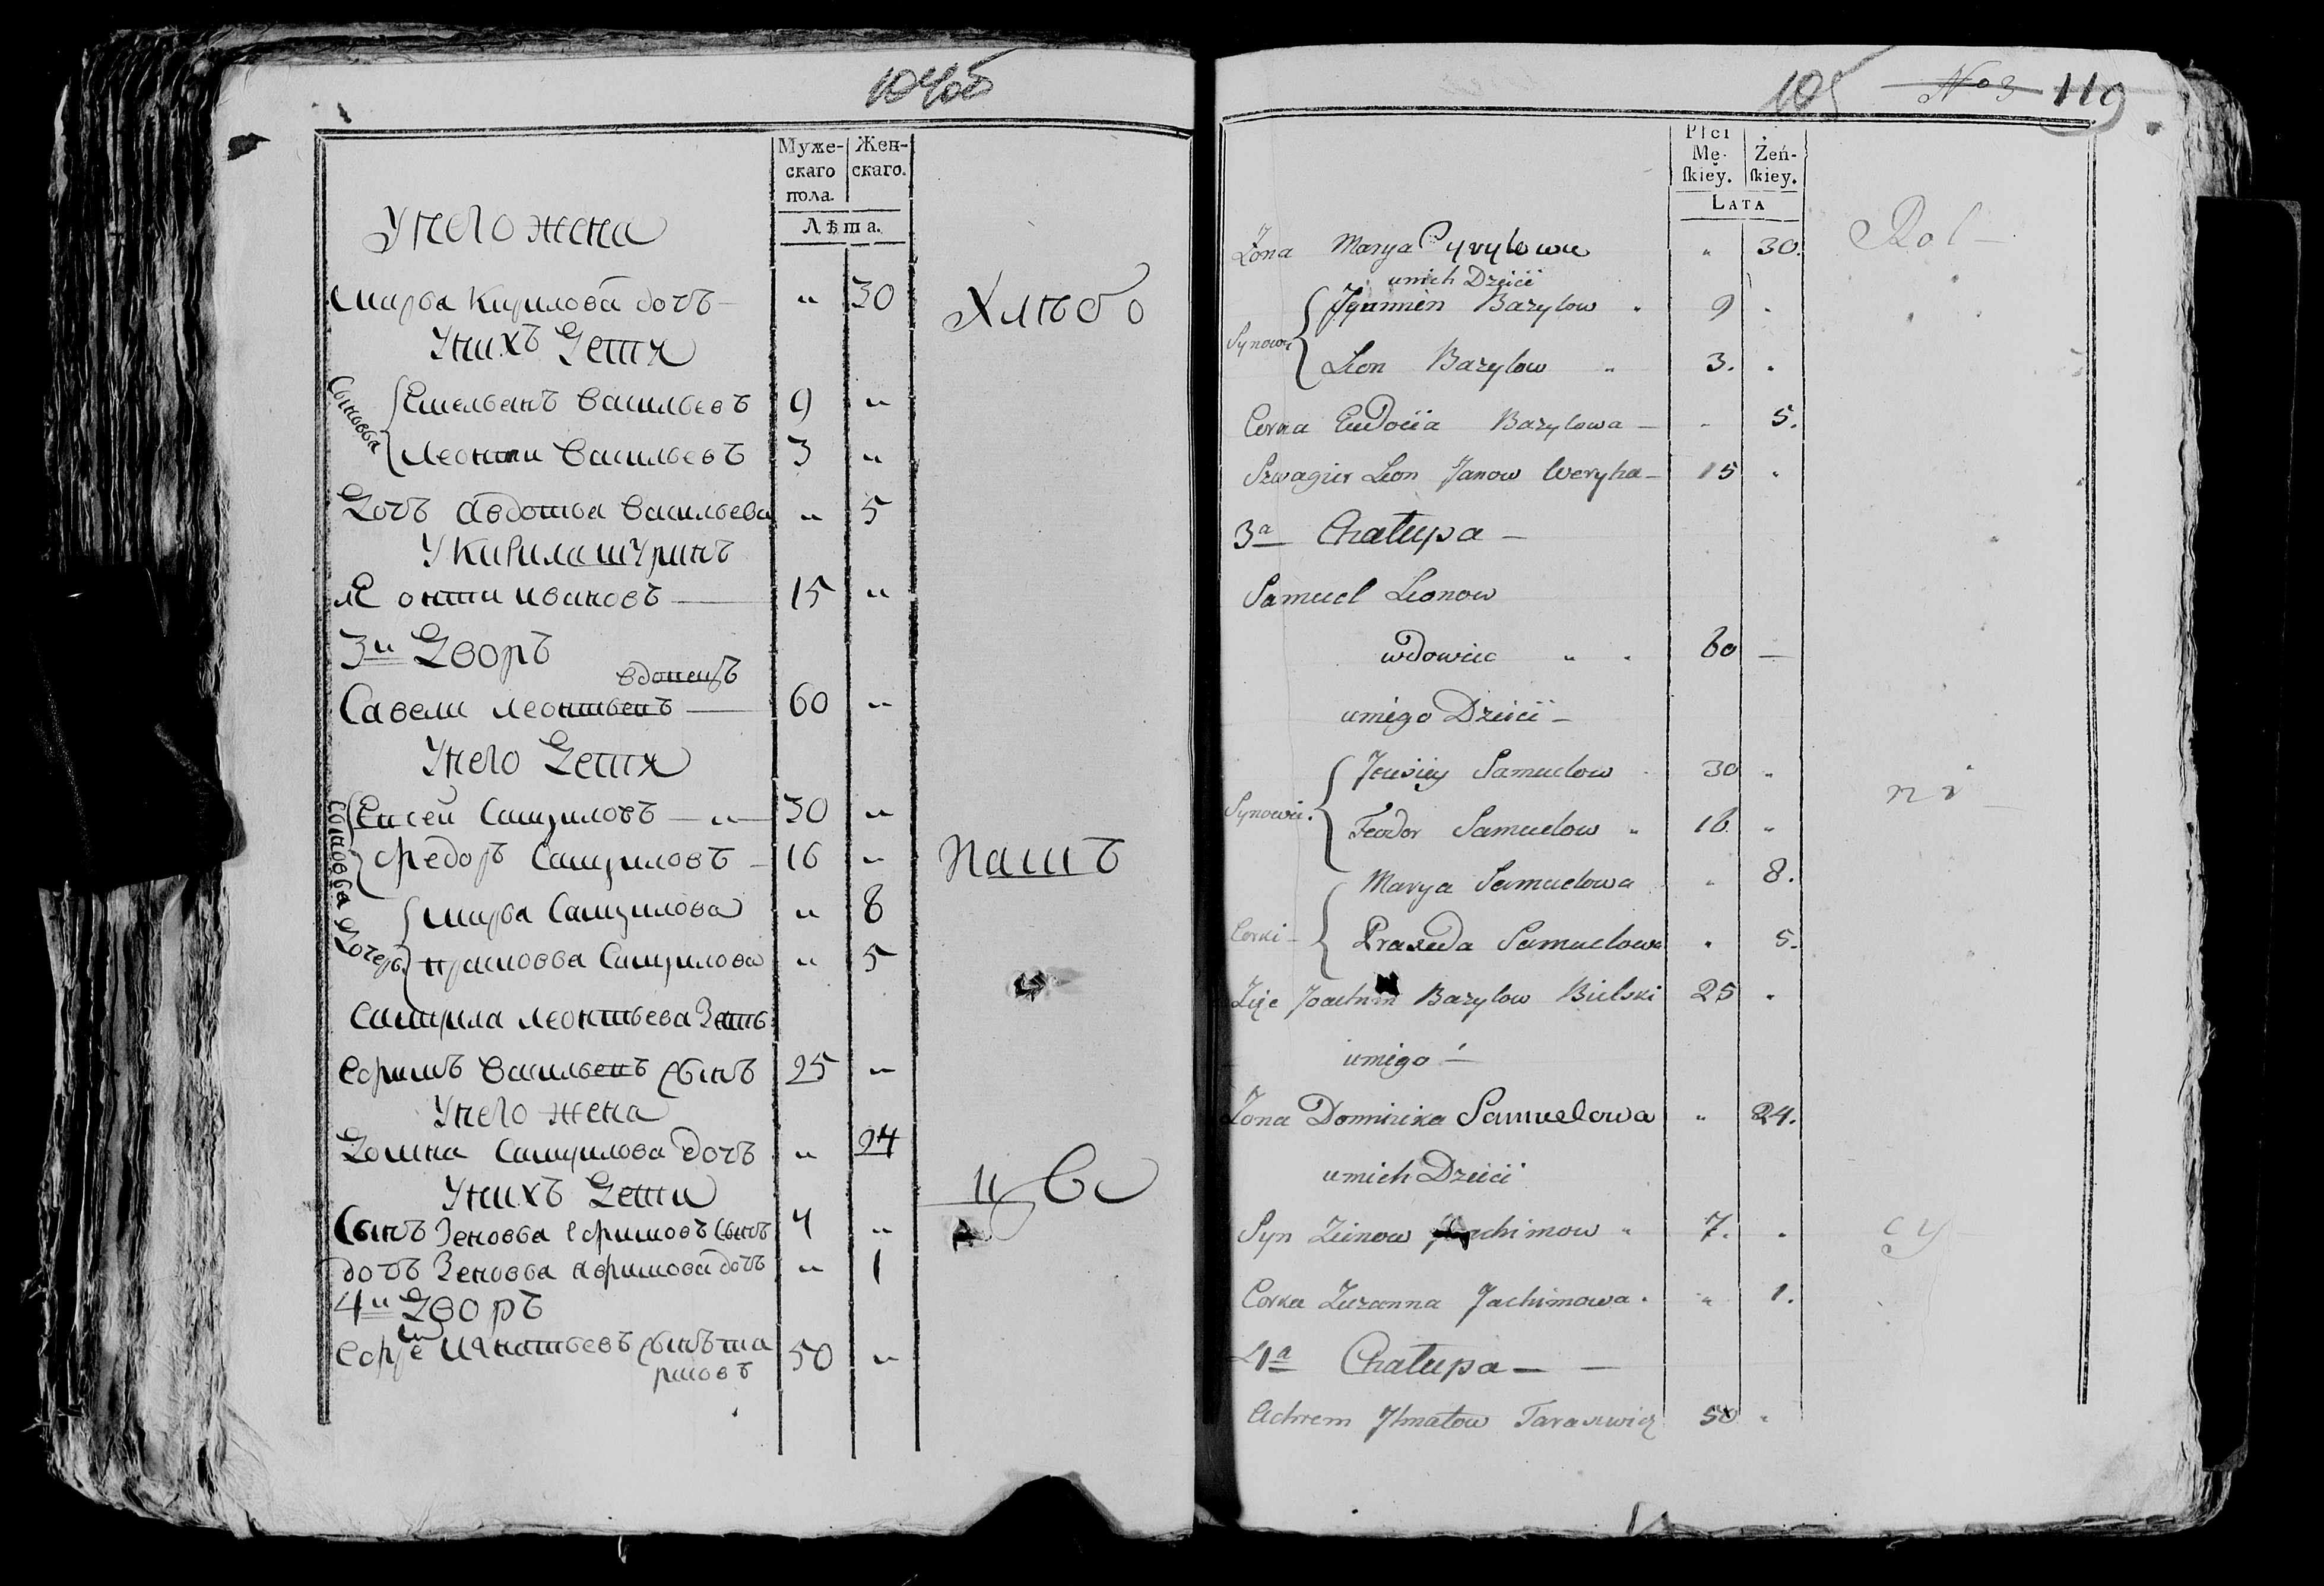 104об
Муже-
скаго
пола.
Жен-
скаго.
Лѣта.
У него жена
Марва Кирилова дочъ — " 30
Хлѣбо
У нихъ Дети
Сыновья
Емельянъ Васильевъ 9 "
Леонти Васильевъ 3 "
Дочъ Авдотья Васильева " 5
У Кирила шуринъ
Леонти Ивановъ — 15 "
3й Дворъ
вдовецъ
Савели Леонтьевъ — 60 "
У него Дети
Сыновья
Елисей Самуиловъ — " — 30 "
Федоръ Самуиловъ — 16 "
Пашъ
Дочерь
Марва Самуилова " 8
Прасковья Самуилова " 5
Самуила Леонтьева Зять
Ефримъ Васильевъ сынъ 25 "
У него жена
Домна Самуилова дочъ " 24
У нихъ Дети
Сынъ Зеновья Ефримовъ Сынъ 7 "
дочъ Зеновья Афримова дочъ " 1
4й Дворъ
Ефре Игнатьевъ сынъ та 50 "
расовъ
105 No 3 119
Płci
Mę-
skiey.
Żeń-
skiey.
LATA
Żona Marya Cyrylowa " 30.
Rol —
unich Dzieci
Synowie
Jgumien Bazylow " 9 "
Leon Bazylow " 3. "
Corka Eudocia Bazylowa — " 5.
Szwagier Leon Janow Weryha — 15 "
3a Chałupa —
Samuel Leonow
wdowiec " " 60 —
uniego Dzieci —
Synowie.
Jewsiey Samuelow " 30 "
ni —
Teodor Samuelow " 16. "
Corki —
Marya Samuelowa " 8.
Praxeda Samuelowa " 5.
Zięc Joachim Bazylow Bielski 25 "
uniego —
Żona Dominika Samuelowa " 24.
unich Dzieci
Syn Zienow Jachimow " 7. "
cy
Corka Zuzanna Jachimowa. " 1.
4a Chałupa — —
Achrem Jhnatow Tarasewicz 50 "